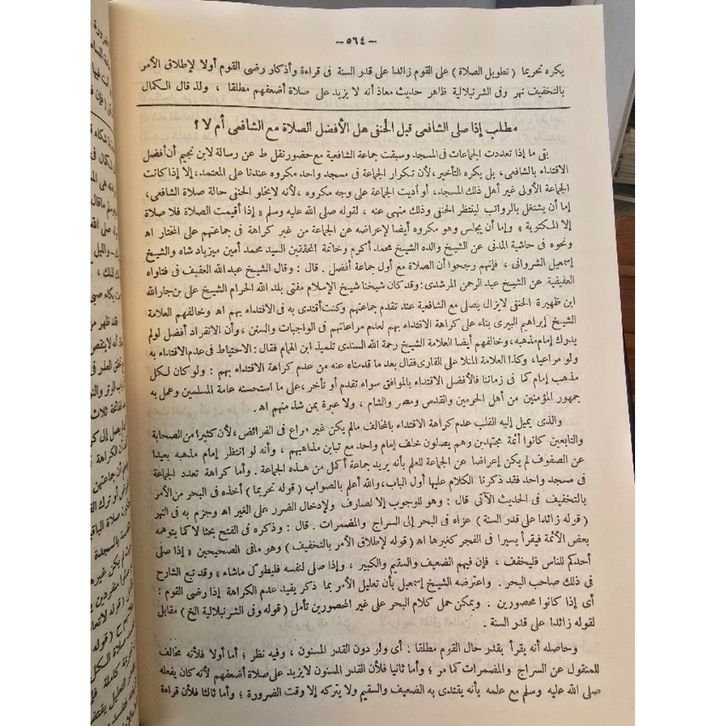 — ٥٦٤ —
يكره تحريما ( تطويل الصلاة ) على القوم زائدا على قدر السنة فى قراءة وأذكار رضى القوم أولا لإطلاق الأمر
بالتخفيف نهر وفى الشرنبلالية ظاهر حديث معاذ أنه لا يزيد على صلاة أضعفهم مطلقا ، ولذا قال الكمال
مطلب إذا صلى الشافعى قبل الحنفى هل الأفضل الصلاة مع الشافعى أم لا ؟
بقى ما إذا تعددت الجماعات فى المسجد وسبقت جماعة الشافعية مع حضور نقل ط عن رسالة لابن نجيم أن أفضل
الاقتداء بالشافعى ، بل يكره التأخير ، لأن تكرار الجماعة فى مسجد واحد مكروه عندنا على المعتمد ، إلا إذا كانت
الجماعة الأولى غير أهل ذلك المسجد ، أو أديت الجماعة على وجه مكروه ، لأنه لايخلو الحنفى حالة صلاة الشافعى ،
إما أن يشتغل بالرواتب لينتظر الحنفى وذلك منهى عنه ، لقوله صلى الله عليه وسلم « إذا أقيمت الصلاة فلا صلاة
إلا المكتوبة » وإما أن يجلس وهو مكروه أيضا لإعراضه عن الجماعة من غير كراهة فى جماعتهم على المختار اه
ونحوه فى حاشية المدنى عن الشيخ والده الشيخ محمد أكرم وخاتمة المحققين السيد محمد أمين ميرباد شاه والشيخ
إسمعيل الشروانى ، فإنهم رجحوا أن الصلاة مع أول جماعة أفضل . قال : وقال الشيخ عبد الله العفيف فى فتاواه
العفيفية عن الشيخ عبد الرحمن المرشدى : وقد كان شيخنا شيخ الإسلام مفتى بلد الله الحرام الشيخ على بن جار الله
ابن ظهيرة ، الحنفى لايزال يصلى مع الشافعية عند تقدم جماعتهم وكنت أقتدى به فى الاقتداء بهم اه وخالفهم العلامة
الشيخ إبراهيم البيرى بناء على كراهة الاقتداء بهم لعدم مراعاتهم فى الواجبات والسنن ، وأن الانفراد أفضل لو لم
يدرك إمام مذهبه ، وخالفهم أيضا العلامة الشيخ رحمة الله السندى تلميذ ابن الهمام فقال : الاحتياط فى عدم الاقتداء به
ولو مراعيا ، وكذا العلامة المنلا على القارى فقال بعد ما قدمناه عنه من عدم كراهة الاقتداء بهم : ولو كان لكل
مذهب إمام كما فى زماننا فالأفضل الاقتداء بالموافق سواء تقدم أو تأخر ، على ما استحسنه عامة المسلمين وعمل به
جمهور المؤمنين من أهل الحرمين والقدس ومصر والشام ، ولا عبرة بمن شذ منهم اه .
والذى يميل إليه القلب عدم كراهة الاقتداء بالمخالف مالم يكن غير مراع فى الفرائض ، لأن كثيرا من الصحابة
والتابعين كانوا أئمة مجتهدين وهم يصلون خلف إمام واحد مع تباين مذاهبهم ، وأنه لو انتظر إمام مذهبه بعيدا
عن الصفوف لم يكن إعراضا عن الجماعة للعلم بأنه يريد جماعة أكمل من هذه الجماعة . وأما كراهة تعدد الجماعة
فى مسجد واحد فقد ذكرنا الكلام عليها أول الباب ، والله أعلم بالصواب ( قوله تحريما ) أخذه فى البحر من الأمر
بالتخفيف فى الحديث الآتى قال : وهو للوجوب إلا لصارف ولإدخال الضرر على الغير اه وجزم به فى النهر
( قوله زائدا على قدر السنة ) عزاه فى البحر إلى السراج والمضمرات . قال : وذكره فى الفتح بحثا لا كما يتوهمه
بعض الأئمة فيقرأ يسيرا فى الفجر كغيرها اه ( قوله لإطلاق الأمر بالتخفيف ) وهو مافى الصحيحين « إذا صلى
أحدكم للناس فليخفف ، فإن فيهم الضعيف والسقيم والكبير ، وإذا صلى لنفسه فليطول ماشاء » وقد تبع الشارح
فى ذلك صاحب البحر . واعترضه الشيخ إسمعيل بأن تعليل الأمر بما ذكر يفيد عدم الكراهة إذا رضى القوم :
أى إذا كانوا محصورين . ويمكن حمل كلام البحر على غير المحصورين تأمل ( قوله وفى الشرنبلالية الخ ) مقابل
لقوله زائدا على قدر السنة .
وحاصله أنه يقرأ بقدر حال القوم مطلقا : أى ولو دون القدر المسنون ، وفيه نظر ؛ أما أولا فلأنه مخالف
للمنقول عن السراج والمضمرات كما مر ؛ وأما ثانيا فلأن القدر المسنون لايزيد على صلاة أضعفهم لأنه كان يفعله
صلى الله عليه وسلم مع علمه بأنه يقتدى به الضعيف والسقيم ولا يتركه إلا وقت الضرورة ؛ وأما ثالثا فلأن قراءة